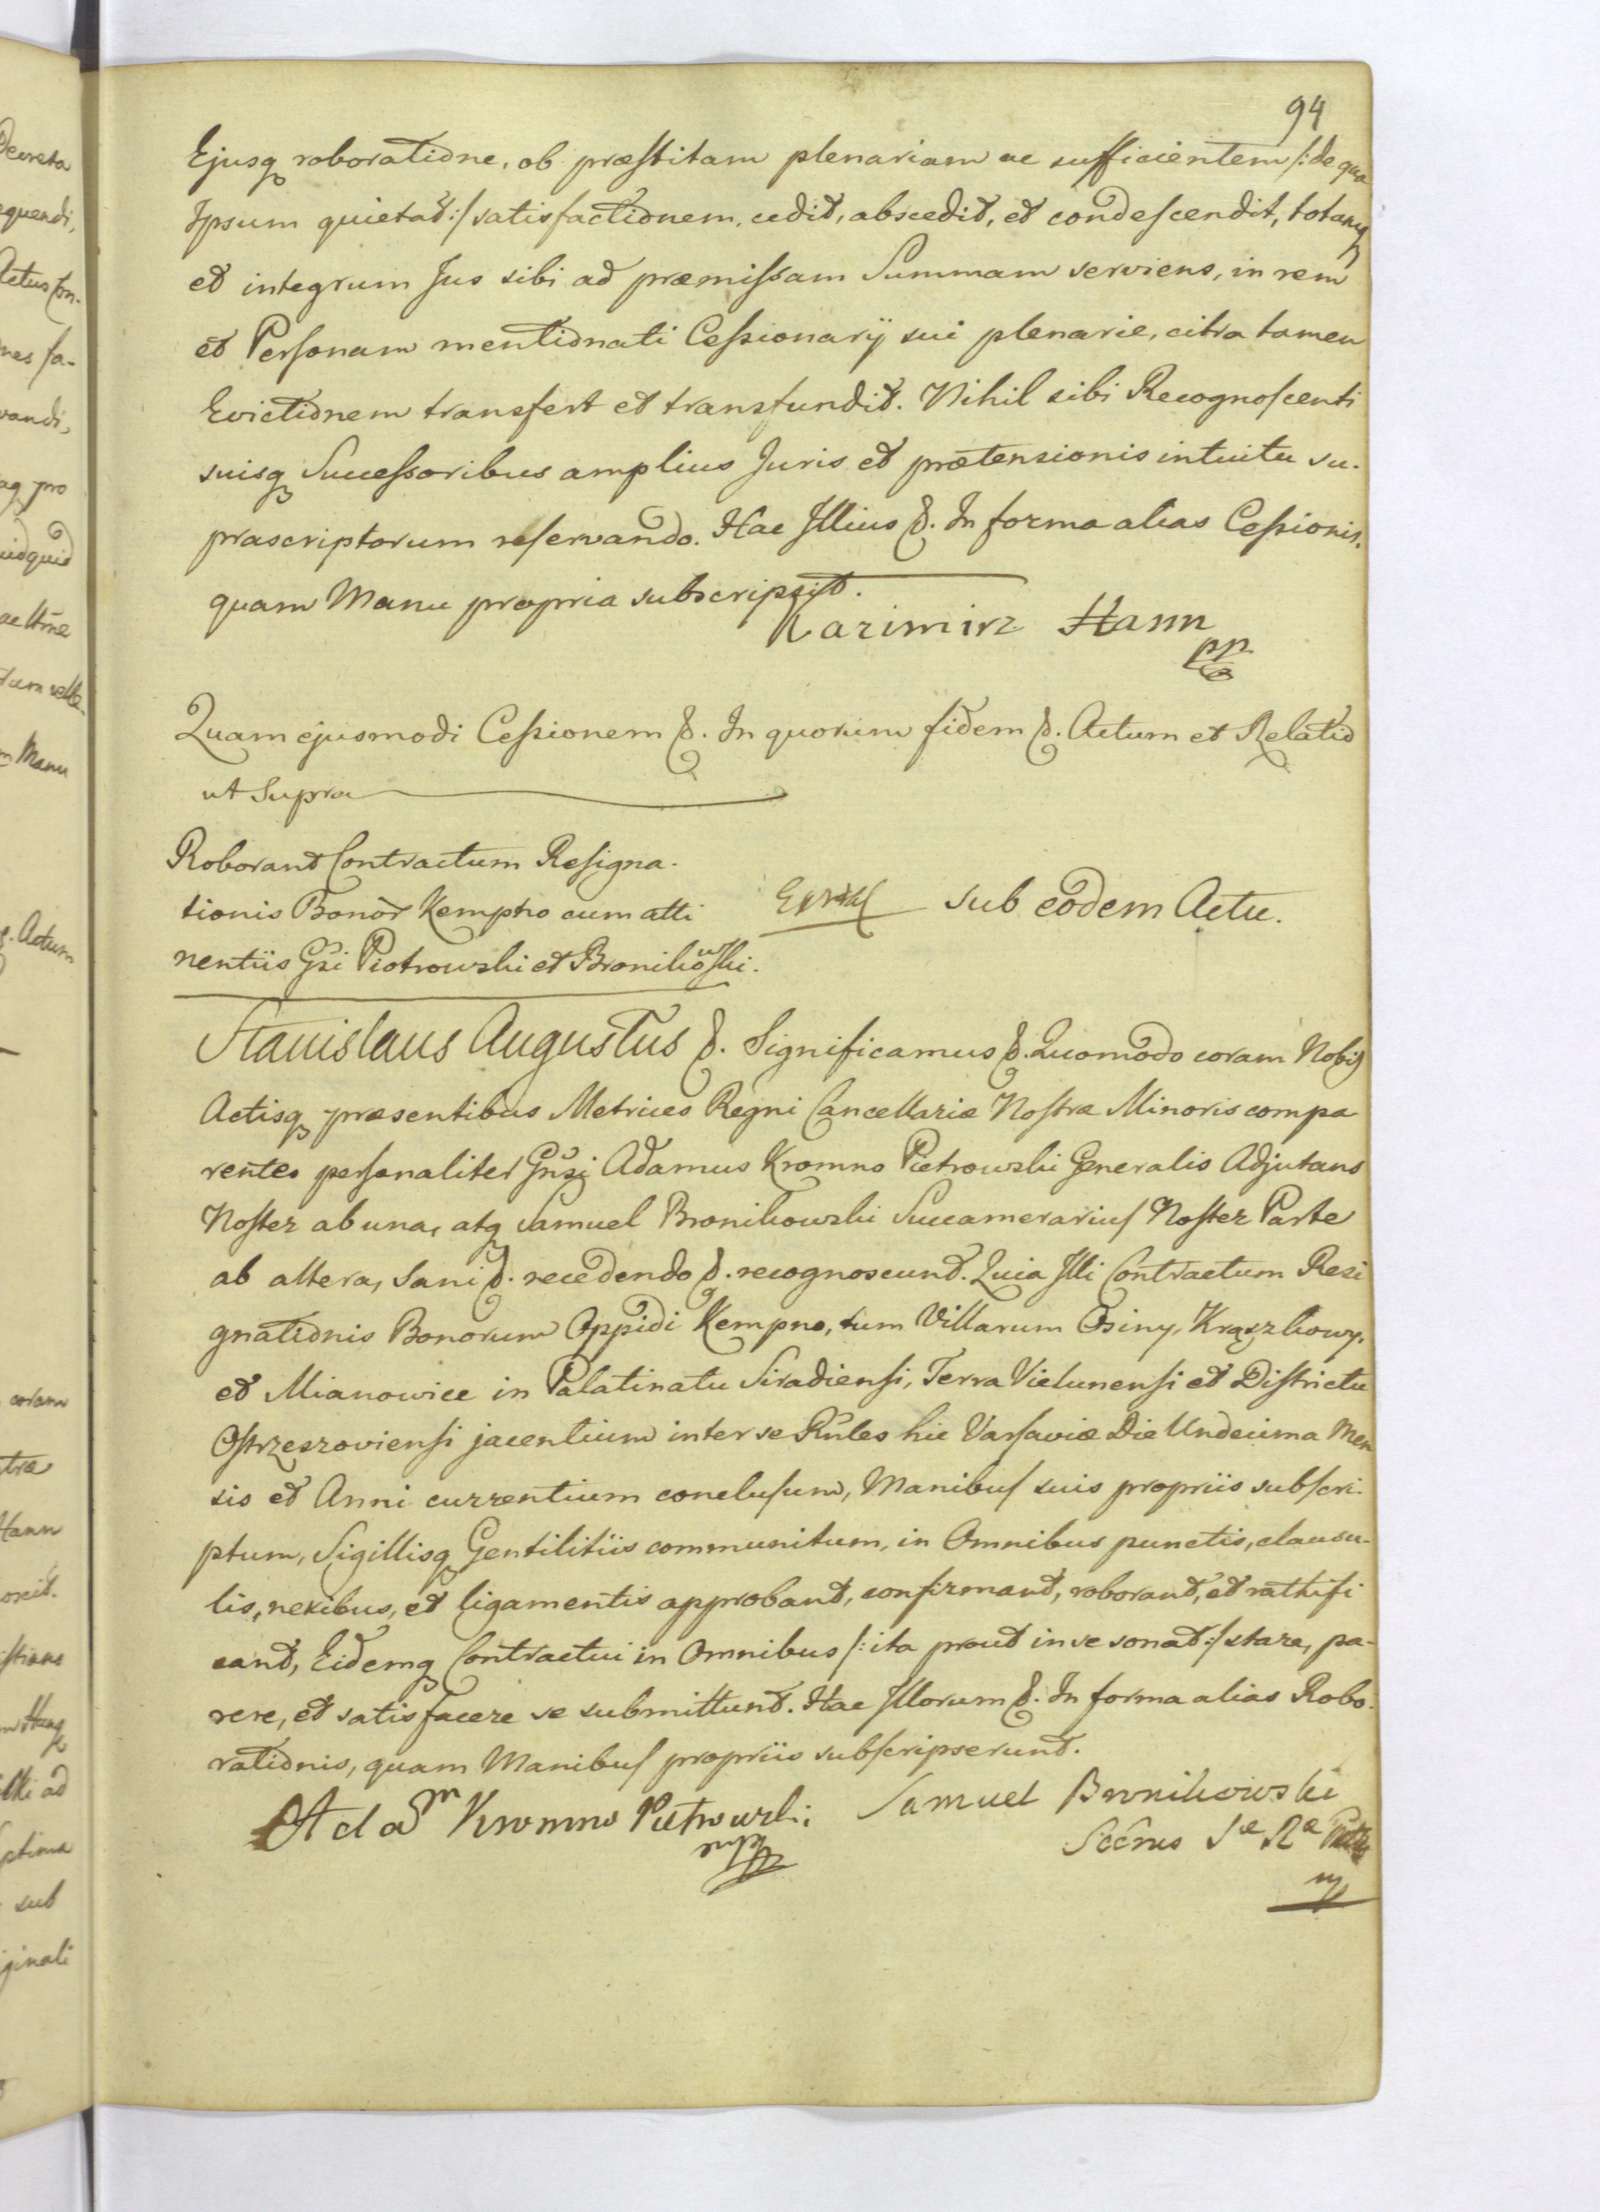 94
Ejusq roboratione, ob præstitam plenariam ac sufficientem /: de qua
Ipsum quietat :/ satisfactionem, cedit, abscedit, et condescendit, totumq
et integrum Jus sibi ad præmissam Summam serviens, in rem
et Personam mentionati Cessionarij sui plenarie, citra tamen
Evictionem transfert et transfundit. Nihil sibi Recognoscenti
suisq Successoribus amplius Juris et prætensionis intuitu su-
prascriptorum reservando. Hac Illius &. In forma alias Cessionis,
quam Manu propria subscripsit.
Kazimirz Hann
pp
Quam ejusmodi Cessionem &. In quorum fidem &. Actum et Relatio
ut Supra
Roborant Contractum Resigna-
tionis Bonor Kempno cum atti
nentiis Gsi Piotrowski et Bronikowski.
sub eodem Actu.
Stanislaus Augustus &. Significamus &. Quomodo coram Nobis
Actisq præsentibus Metrices Regni Cancellariæ Nostræ Minoris compa
rentes personaliter Gnsi Adamus Kromno Pietrowski Generalis Adjutans
Noster ab una, atq Samuel Bronikowski Succamerarius Noster Parte
ab altera, Sani &. recedendo &. recognoscunt. Quia Illi Contractum Resi
gnationis Bonorum Oppidi Kempno, tum Villarum Osiny, Krążkowy,
et Mianowice in Palatinatu Siradiensi, Terra Vielunensi et Districtu
Ostrzeszoviensi jacentium inter se Rnles hic Varsaviæ Die Undecima Men
sis et Anni currentium conclusum, Manibus suis propriis subscri-
ptum, Sigillisq Gentilitiis communitum, in Omnibus punctis, clausu-
lis, nexibus, et ligamentis approbant, confirmant, roborant, et rathifi
cant, Eidemq Contractui in Omnibus /: ita prout in se sonat :/ stare, pa-
rere, et satisfacere se submittunt. Hac Illorum &. In forma alias Robo-
rationis, quam Manibus propriis subscripserunt.
Adam Kromno Pietrowski
mpp
Samuel Bronikowski
mp